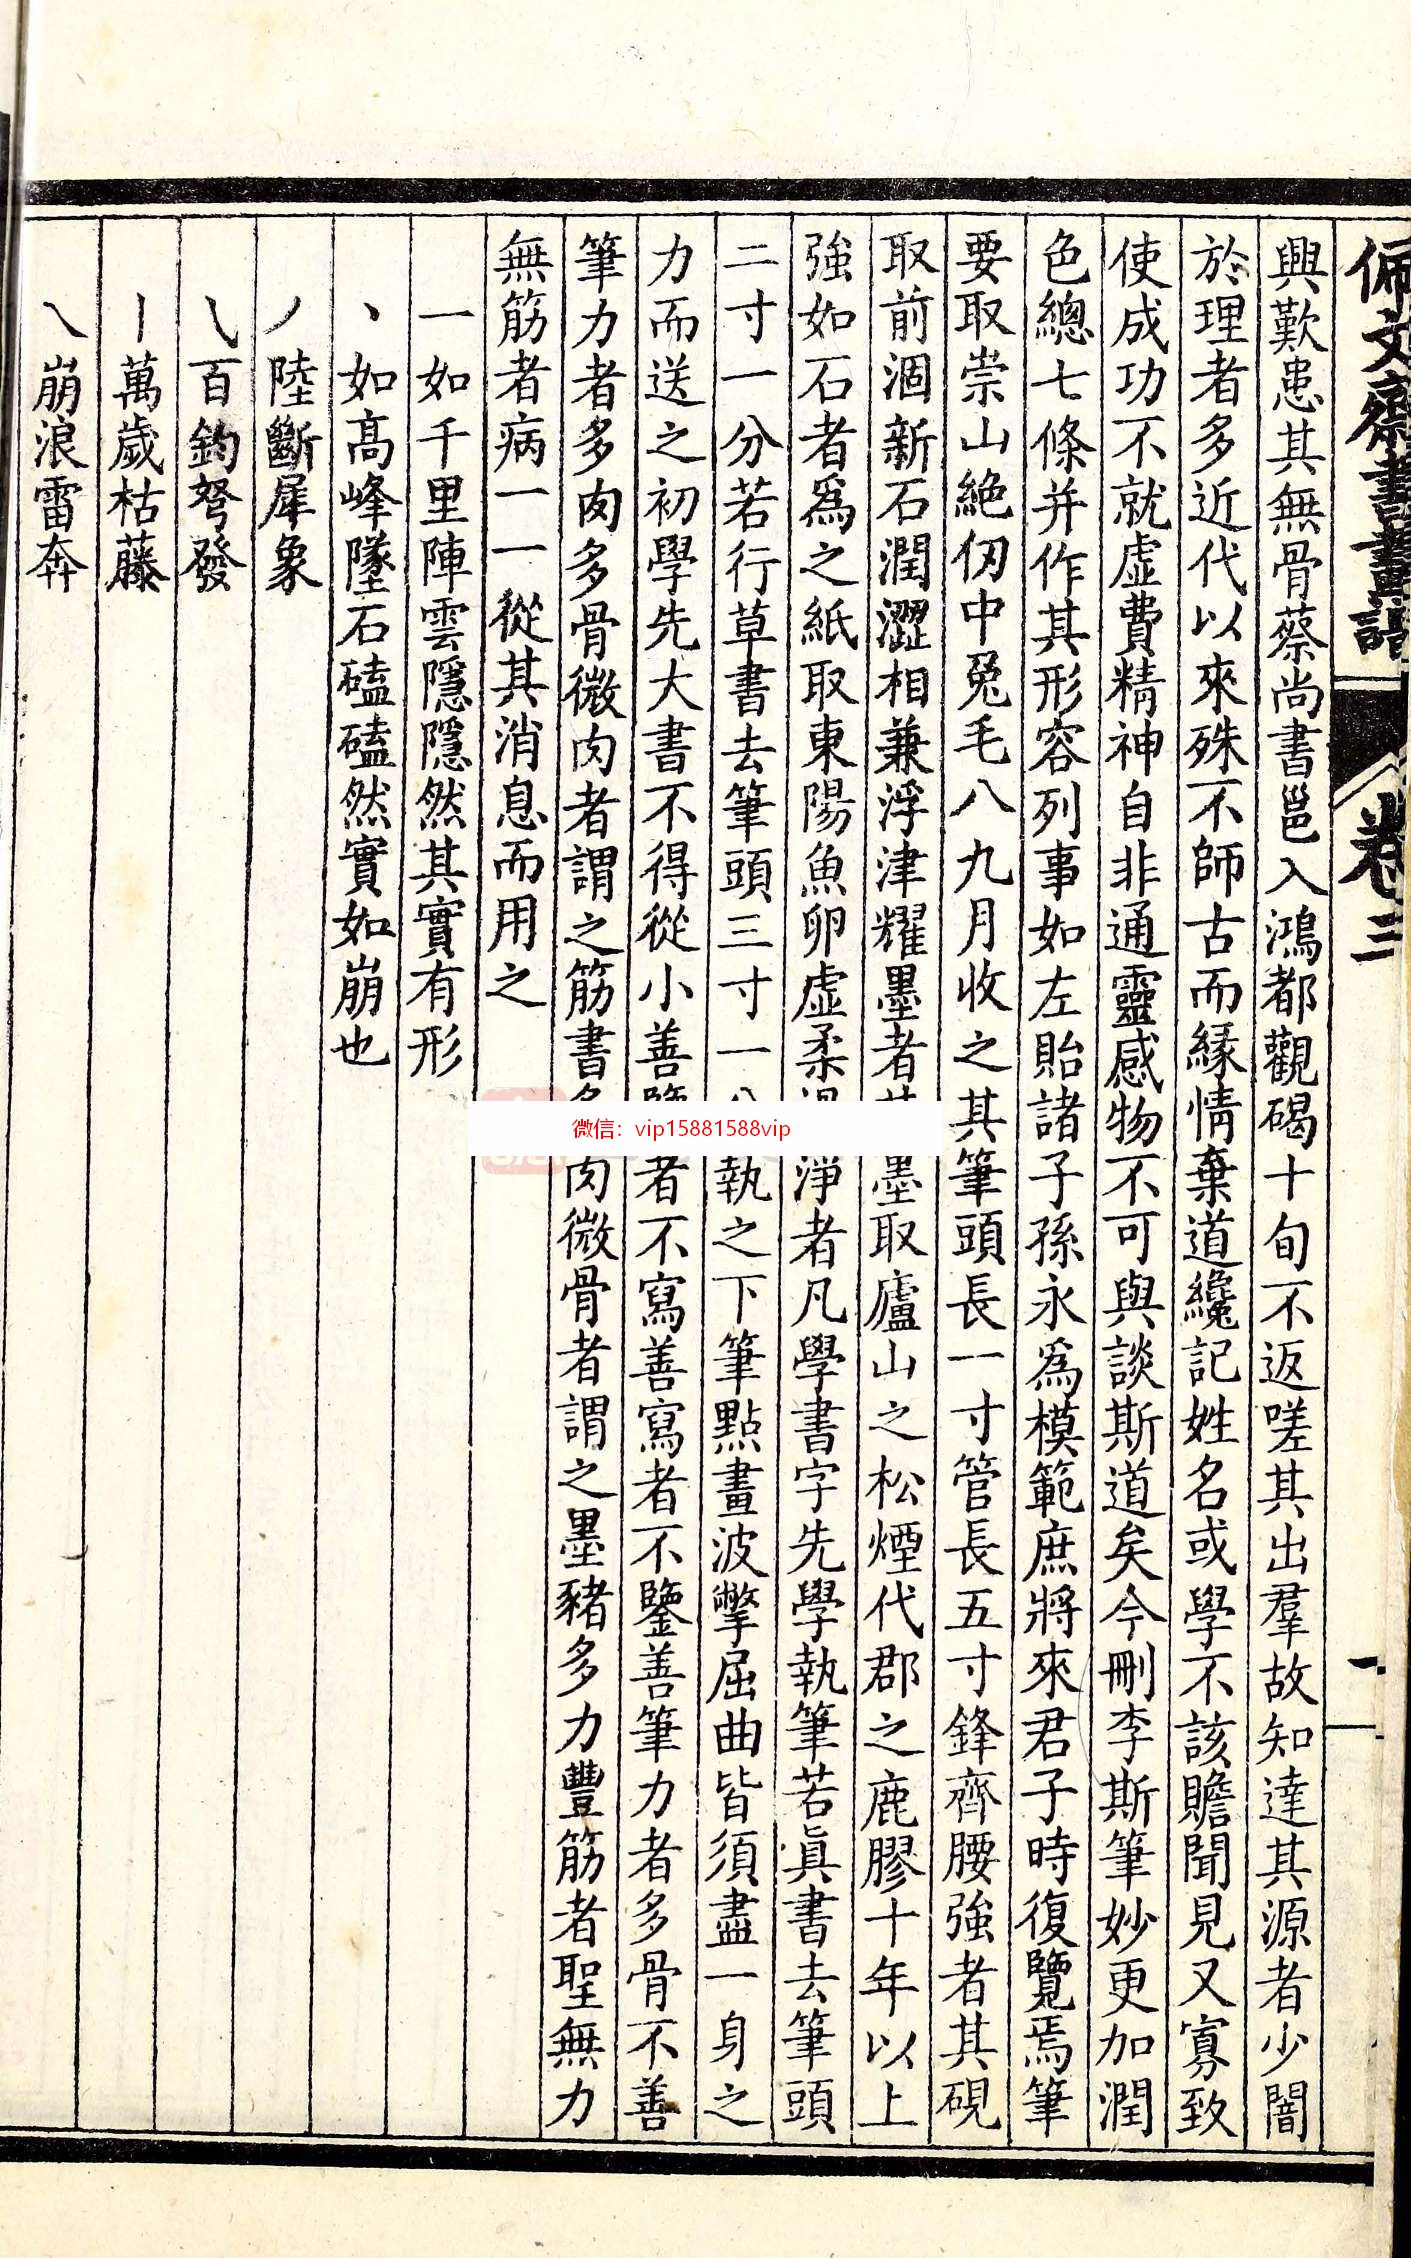 佩文齋書畫譜 卷三
興歎患其無骨蔡尚書邕入鴻都觀碣十旬不返嗟其出羣故知達其源者少闇
於理者多近代以來殊不師古而緣情棄道纔記姓名或學不該贍聞見又寡致
使成功不就虛費精神自非通靈感物不可與談斯道矣今刪李斯筆妙更加潤
色總七條并作其形容列事如左貽諸子孫永爲模範庶將來君子時復覽焉筆
要取崇山絶仞中兔毛八九月收之其筆頭長一寸管長五寸鋒齊腰強者其硯
取前涸新石潤澀相兼浮津耀墨者墨取廬山之松煙代郡之鹿膠十年以上
強如石者爲之紙取東陽魚卵虛柔淨者凡學書字先學執筆若眞書去筆頭
二寸一分若行草書去筆頭三寸一執之下筆點畫波撆屈曲皆須盡一身之
力而送之初學先大書不得從小善者不寫善寫者不鑒善筆力者多骨不善
筆力者多肉多骨微肉者謂之筋書肉微骨者謂之墨豬多力豐筋者聖無力
無筋者病一一從其消息而用之
一如千里陣雲隱隱然其實有形
丶如高峰墜石磕磕然實如崩也
丿陸斷犀象
乀百鈞弩發
丨萬歲枯藤
乀崩浪雷奔
微信：vip15881588vip